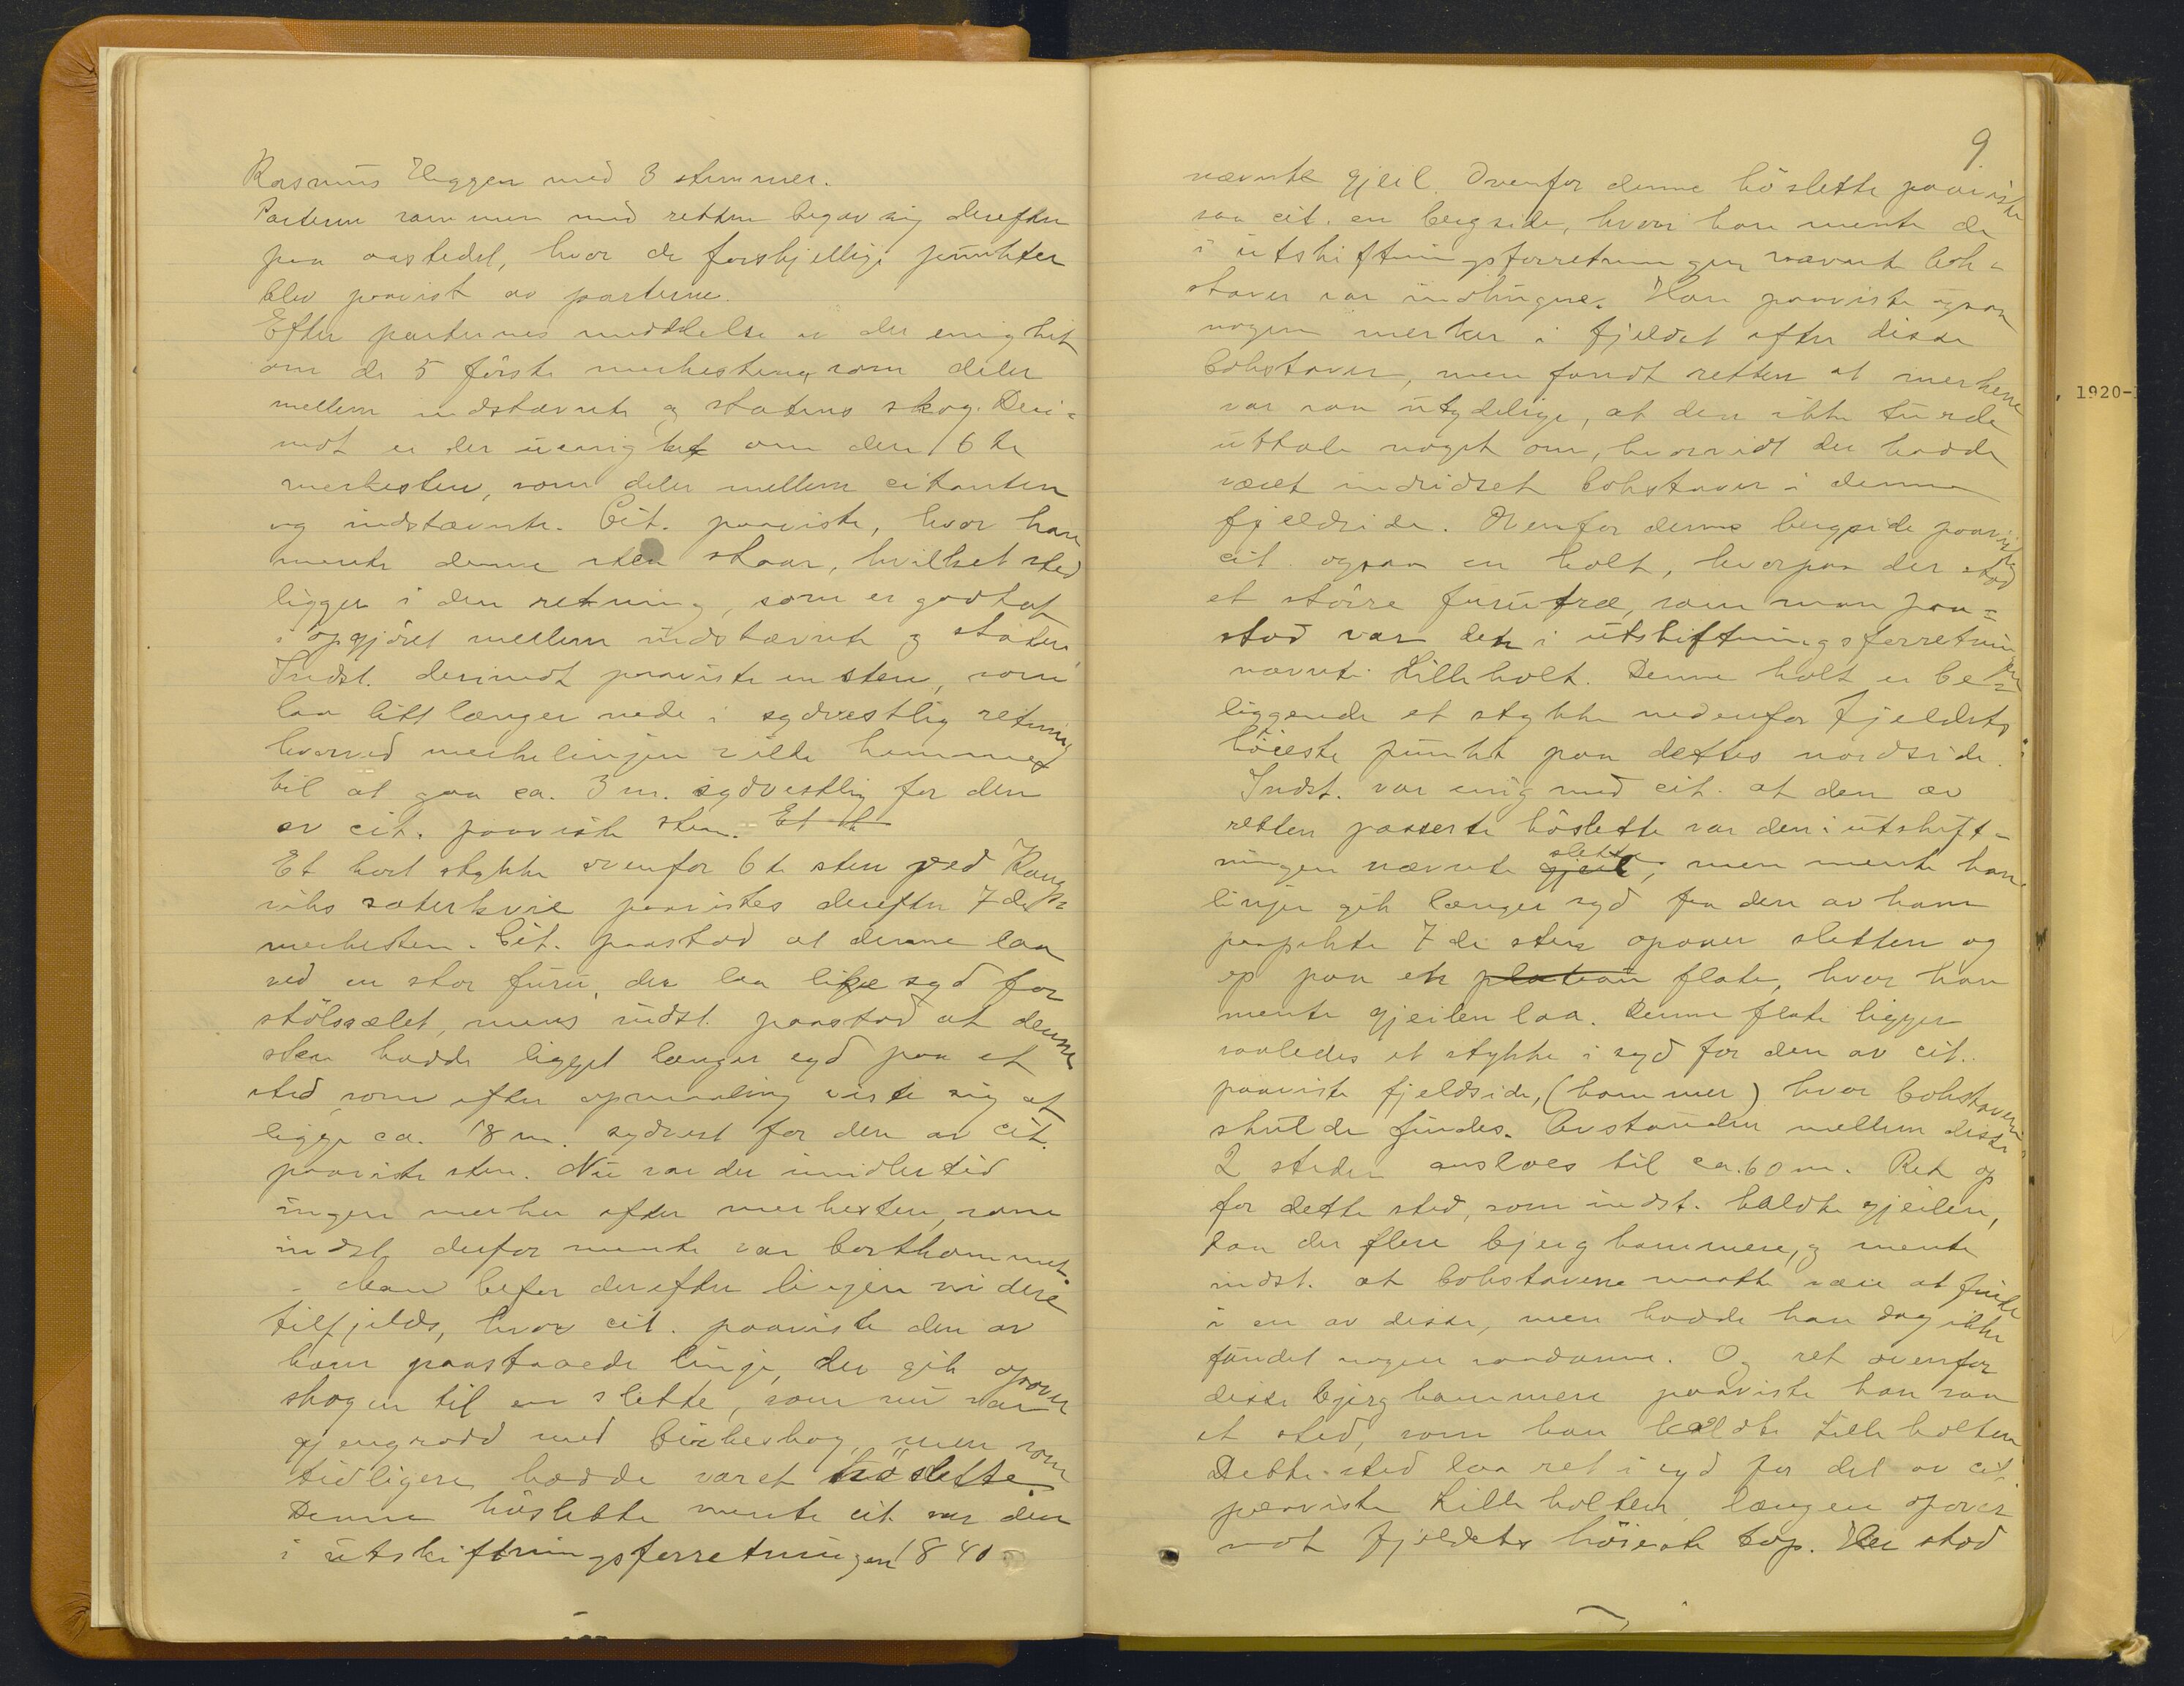 Rasmus Heggen med 3 stemmer.
Parterne sammen med retten begav sig derefter
paa aastedet, hvor de forskjellige punkter
blev paavist av parterne.
Efter parternes meddelelse er der enighet
om de 5 første merkestener som deler
mellem indstævnte og statens skog. Deri-
mot er der uenighet om den 6te
merkesten, som deler mellem citanten
og indstævnte. Cit. paaviste, hvor han
mente denne sten staar, hvilket sted
ligger i den retning, som er godtat
i opgjöret mellem indstævnte og staten,
Indst. derimot paaviste en sten, som
laa litt længer nede i sydvestlig retning
hvorved merkelinjen vilde komme
til at gaa ca. 3 m. sydvestlig for den
av cit. paaviste sten. Et k
Et kort stykke ovenfor 6te sten ved
viks sæterkvie paavistes derefter 7de
merkesten. Cit. paastod at denne laa
ved en stor furu, der laa like syd for
stölsvælet, mens indst. paastod at denne
sten hadde ligget længer syd paa et
sted som efter opmaaling viste sig at
ligge ca. 18 m. sydvest for den av cit.
paaviste sten. Nu var der imidlertid
ingen merker efter merkesten, som
indst. derfor mente var bortkommet.
- Man befor derefter linjen videre
tilfjelds, hvor cit. paaviste den av
ham paastaaede linje, der gik opover
skogen til en slette, som nu var
gjengrodd med birkeskog, men som
tidligere hadde været höslette.
Denne höslette mente cit. var den
i utskiftningsforretningen 1840
9.
nævnte gjeil. Ovenfor denne höslette paaviste
saa cit. en bergside, hvori han mente de
i utskiftningsforretningen nævnte bok-
staver var indhugne. Han paaviste ogsaa
nogen merker i fjeldet efter disse
bokstaver, men fandt retten at merkene
var saa utydelige, at den ikke turde
uttale noget om, hvorvidt der hadde
været indridset bokstaver i denne
fjeldside. Ovenfor denne bergside paaviste
cit. ogsaa en holt, hvorpaa der stod
et större furutræ, som man paa-
stod var den i utskiftningsforretningen
nævnte Lilleholt. Denne holt er be-
liggende et stykke nedenfor fjeldets
höieste punkt paa dettes nordside.
Indst. var enig med cit. at den av
retten passerte höslette var den i utskift-
ningen nævnte gjeil slette, men mente han
linjen gik længer syd fra den av ham
paapekte 7de sten opover sletten og
op paa en platau flate, hvor han
mente gjeilen laa. Denne flate ligger
saaledes et stykke i syd for den av cit.
paaviste fjeldside, (hammer) hvor bokstaverne
skulde findes. Avstanden mellem disse
2 steder ansloes til ca. 60 m. Ret op
for dette sted, som indst. kaldte gjeilen,
laa der flere bjerghammere, og mente
indst. at bokstavene maatte være at finde
i en av disse, men hadde han dog ikke
fundet nogen saadanne. Og ret ovenfor
disse bjerghammere paaviste han saa
et sted, som han kaldte Lilleholten
Dette sted laa ret i syd for det av cit.
paaviste Lilleholten længer opover
mot fjeldets höieste top. Her stod
, 1920-